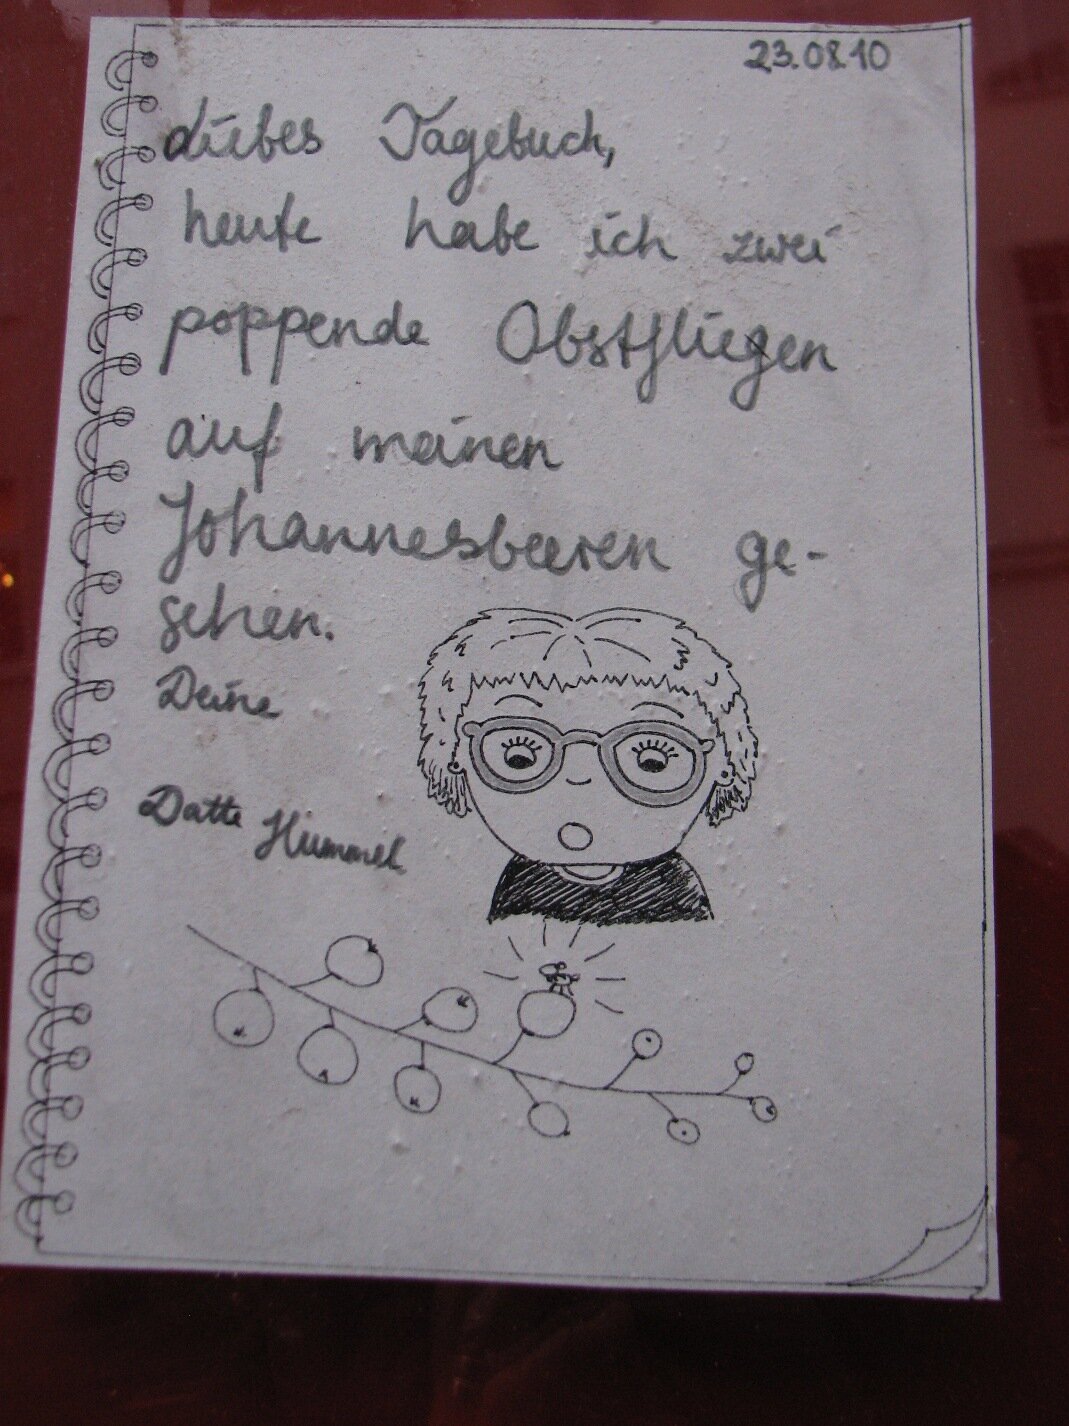 23.08.10
Liebes Tagebuch,
heute habe ich zwei
poppende Obstfliegen
auf meinen
Johannesbeeren ge-
sehen.
Deine
Datte Hummel